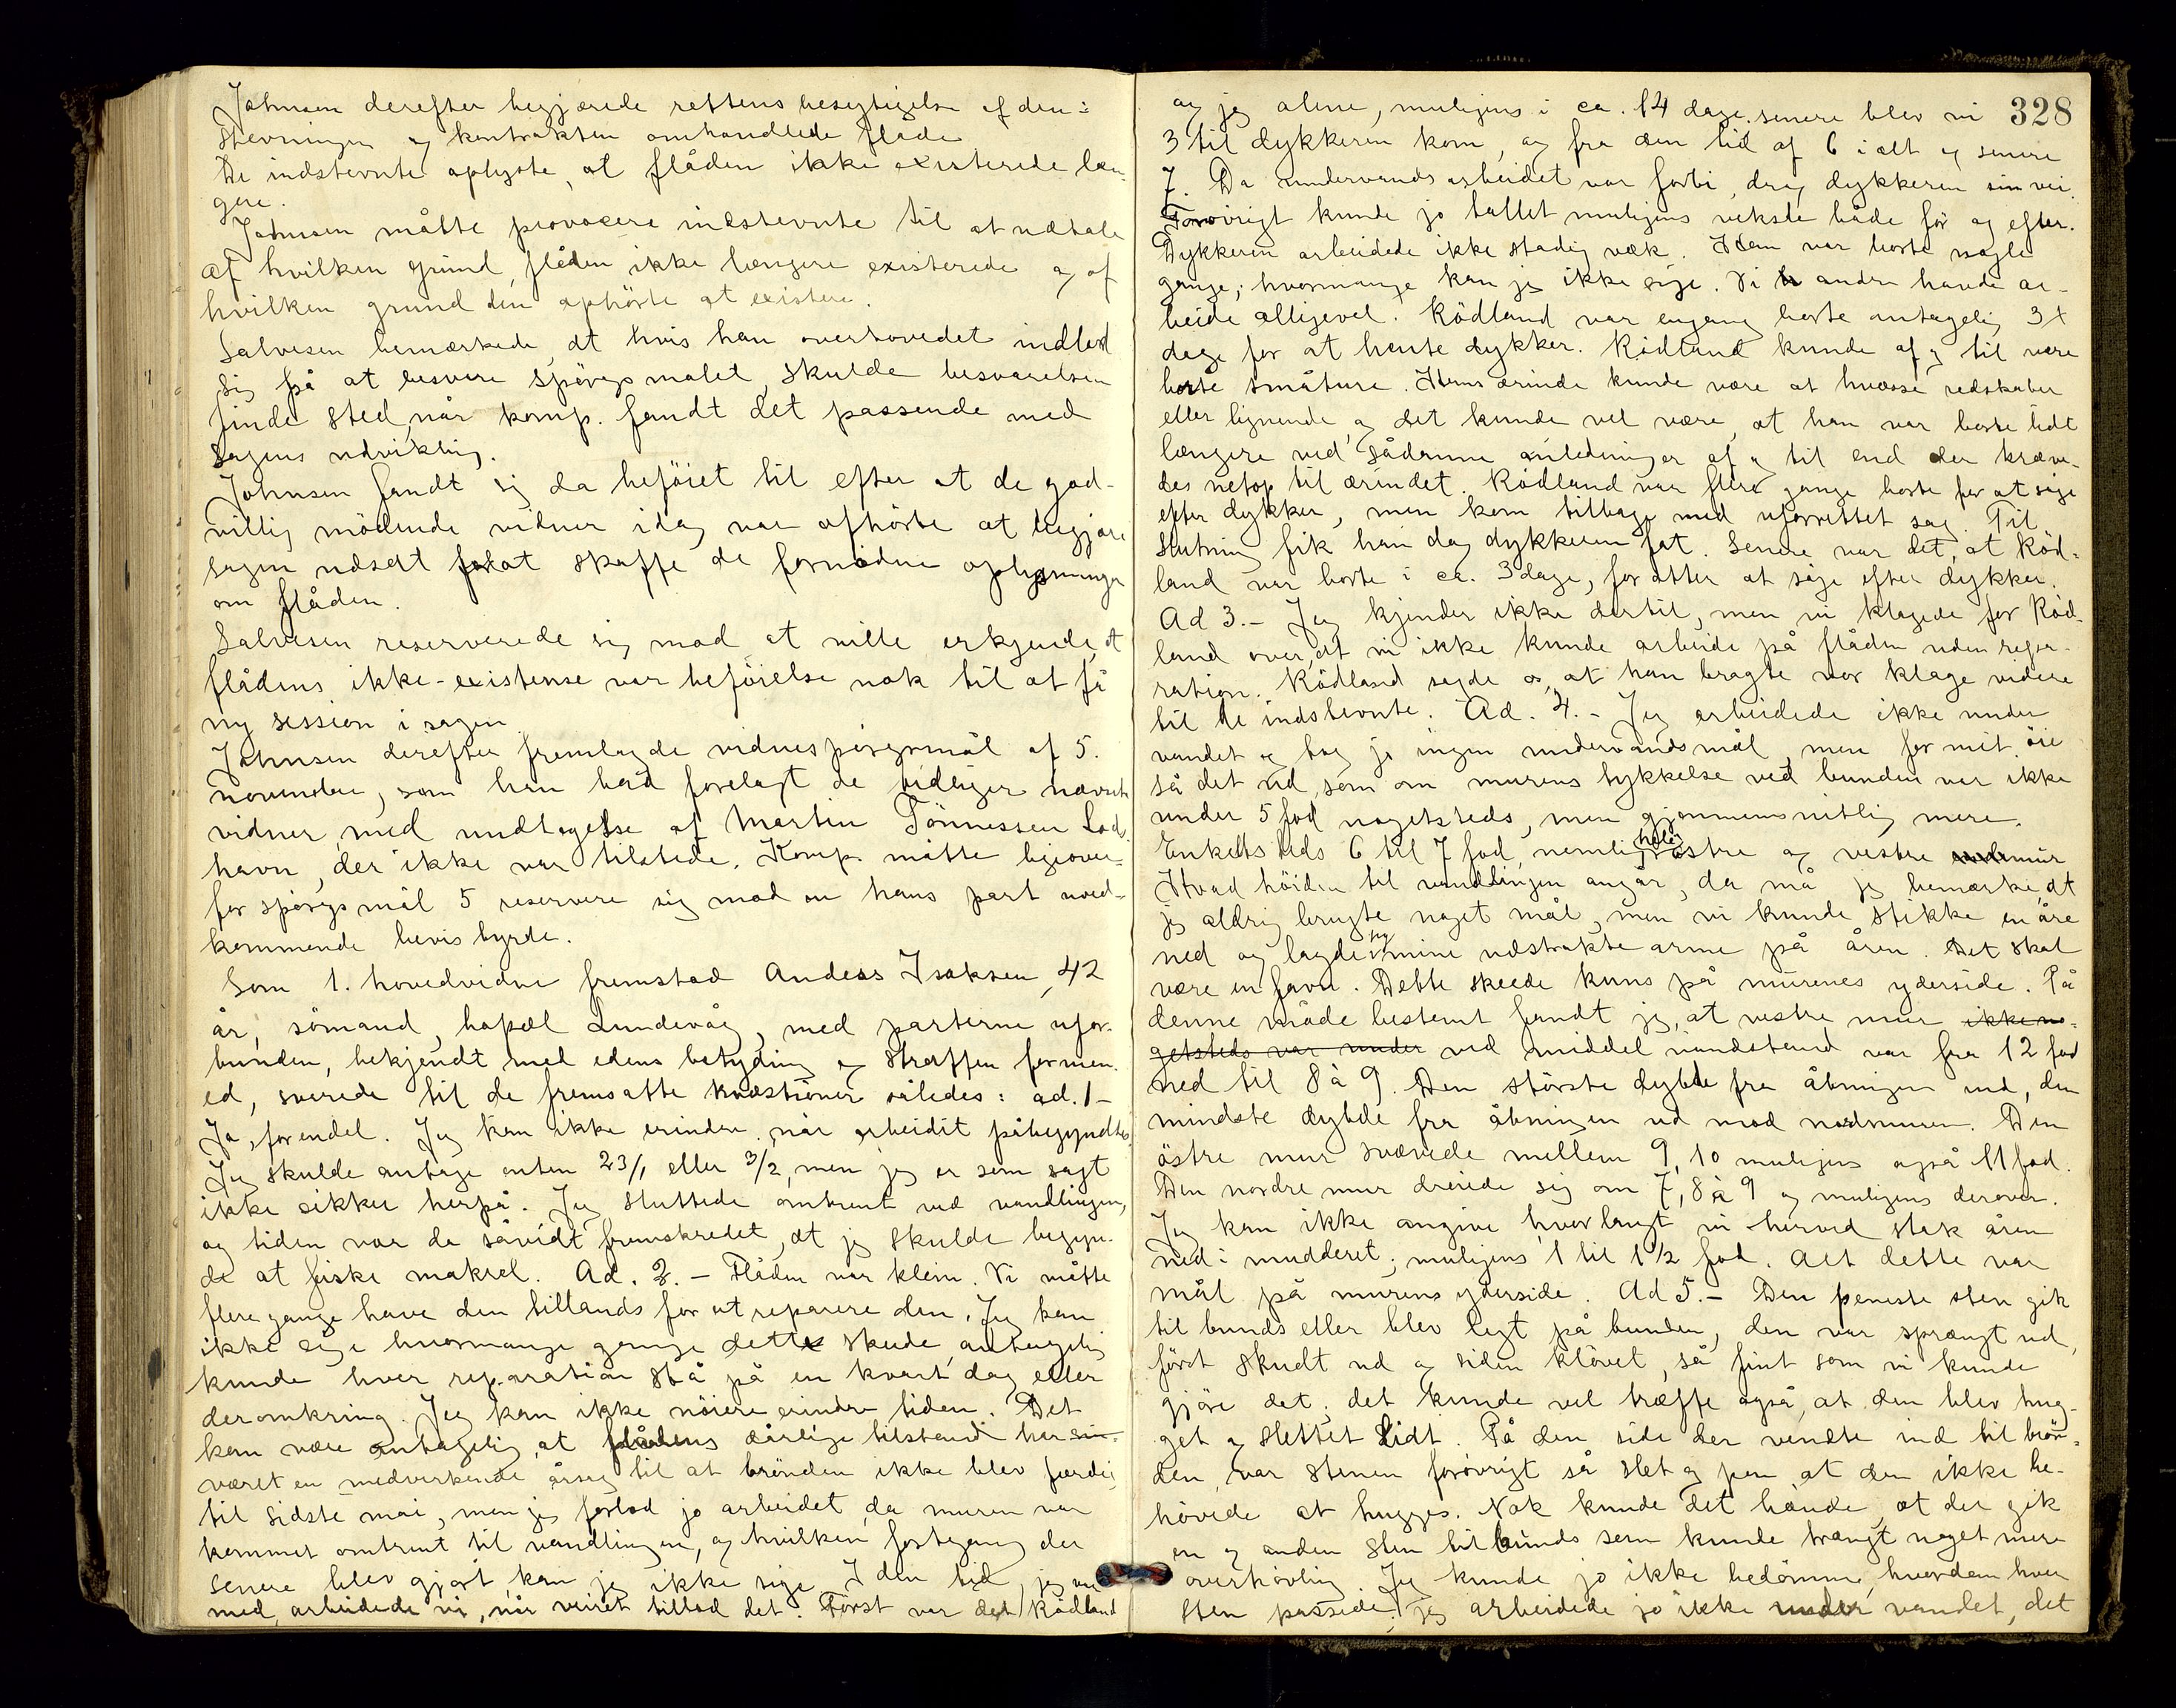 Johnsen derefter begjærede rettens besigtigelse af den i
stevningen og kontrakten omhandlede flåde
De indstevnte oplyste, at flåden ikke existerede læn-
gere.
Johnsen måtte provocere indstevnte til at udtale
af hvilken grund flåden ikke længere existerede og af
hvilken grund den ophörte at existere.
Salvesen bemærkede, at hvis han overhovedet indlod
sig på at besvare spörgsmålet, skulde besvarelsen
finde sted, når komp. fandt det passende med
sagens udvikling.
Johnsen fandt sig da beföiet til efter at de god-
villig mödende vidner idag var afhörte at begjære
sagen udsat for at skaffe de fornödne oplysninger
om flåden.
Salvesen reserverede sig mod at ville erkjende, at
flådens ikke-existense var beföielse nok til at få
ny session i sagen.
Johnsen derefter fremlagde vidnespörgsmål af 5.
november, som han bad forelagt de tidligere nævnte
vidner med undtagelse af Martin Tönnessen Lods-
havn, der ikke var tilstede. Komp. måtte ligeover-
for spörgsmål 5 reservere sig mod en hans part uved-
kommende bevisbyrde.
Som 1. hovedvidne fremstod Anders Isaksen, 42
år, sömand, bopæl Lundevåg, med parterne ufor-
bunden, bekjendt med edens betydning og straffen for men-
ed, svarede til de fremsatte kvæstioner således: ad. 1-
Ja, for endel. Jeg kan ikke erindre, når arbeidet påbegyndtes
Jeg skulde antage enten 23/1 eller 3/2, men jeg er som sagt
ikke sikker herpå. Jeg sluttede omtrent ved vandlingen,
og tiden var da såvidt fremskredet, at jeg skulde begyn-
de at fiske makrel. Ad. 2. - Flåden var klein. Vi måtte
flere gange have den tillands for at reparere den. Jeg kan
ikke sige hvormange gange dette skede, antagelig
kunde hver reparation stå på en kvart dag eller
deromkring. Jeg kan ikke nöiere erindre tiden. Det
kan være antagelig, at flådens dårlige tilstand har
været en medvirkende årsag til at brönden ikke blev færdig
til sidste mai, men jeg forlod jo arbeidet, da muren var
kommet omtrent til vandlingen, og hvilken fortgang der
senere blev gjort kan jeg ikke sige. I den tid, jeg var
med, arbeidede vi, når veiret tillod det. Först var det Rödland
og jeg alene, muligens i ca. 14 dage. senere blev vi 328
3 til dykkeren kom, og fra den tid af 6 i alt og senere
7. Da undervandsarbeidet var forbi, drog dykkeren sin vei.
Forövrigt kunde jo tallet muligens veksle både för og efter.
Dykkeren arbeidede ikke stadig væk. Han var borte nogle
gange; hvormange kan jeg ikke sige. Vi andre havde ar-
beide alligevel. Rödland var engang borte antagelig 3
dage for at hente dykker. Rödland kunde af og til være
borte småture. Hans ærinde kunde være at hvæsse redskaber
eller lignende, og det kunde vel være, at han var borte lidt
længere ved sådanne anledninger af og til end der kræve-
des netop til ærindet. Rödland var flere gange borte for at söge
efter dykker, men kom tilbage med uforrettet sag. Til
slutning fik han dog dykkeren fat. Senere var det, at Röd-
land var borte i ca. 3 dage, for atter at söge efter dykker.
Ad 3. - Jeg kjender ikke dertil, men vi klagede for Röd-
land over, at vi ikke kunde arbeide på flåden uden repa-
ration. Rödland sagde os, at han bragte vor klage videre
til de indstevnte. Ad. 4. - Jeg arbeidede ikke under
vandet og tog jo ingen undervandsmål, men for mit öie
så det ud, som om murens tykkelse ved bunden var ikke
under 5 fod nogetsteds, men gjennemsnitlig mere.
Enkeltsteds 6 til 7 fod, nemlig östre og vestre mur
Hvad höiden til vandlingen angår, da må jeg bemærke, at
jeg aldrig brugte noget mål, men vi kunde stikke en åre
ned og lagde jeg mine udstrakte arme på åren. Det skal
være en favn. Dette skeede kuns på murenes yderside. På
denne måde bestemt fandt jeg, at vestre mur ikke no-
getsteds var under ved middel vandstand var fra 12 fod
ned til 8 à 9. Den störste dybde fra åbningen ind, den
mindste dybde fra åbningen ud mod nordmuren. Den
östre mur svævede mellem 9, 10 muligens også 11 fod.
Den nordre mur dreiede sig om 7, 8 à 9 og muligens derover.
Jeg kan ikke angive, hvor langt vi herved stak åren
ned i mudderet; muligens 1 til 1½ fod. Alt dette var
mål på murens yderside. Ad 5. - Den peneste sten gik
til bunds eller blev lagt på bunden, den var sprængt ud,
först skudt ud og siden klövet, så fint som vi kunde
gjöre det; det kunde vel træffe også, at den blev hug-
get og slettet lidt. På den side der vendte ind til brön-
den, var stenen forövrigt så slet og pen at den ikke be-
hövede at hugges. Nok kunde det hænde, at der gik
en og anden sten til bunds som kunde trængt noget mere
overhövling. Jeg kunde jo ikke bedömme, hvordan hver
sten passede; jeg arbeidede jo ikke under vandet, det